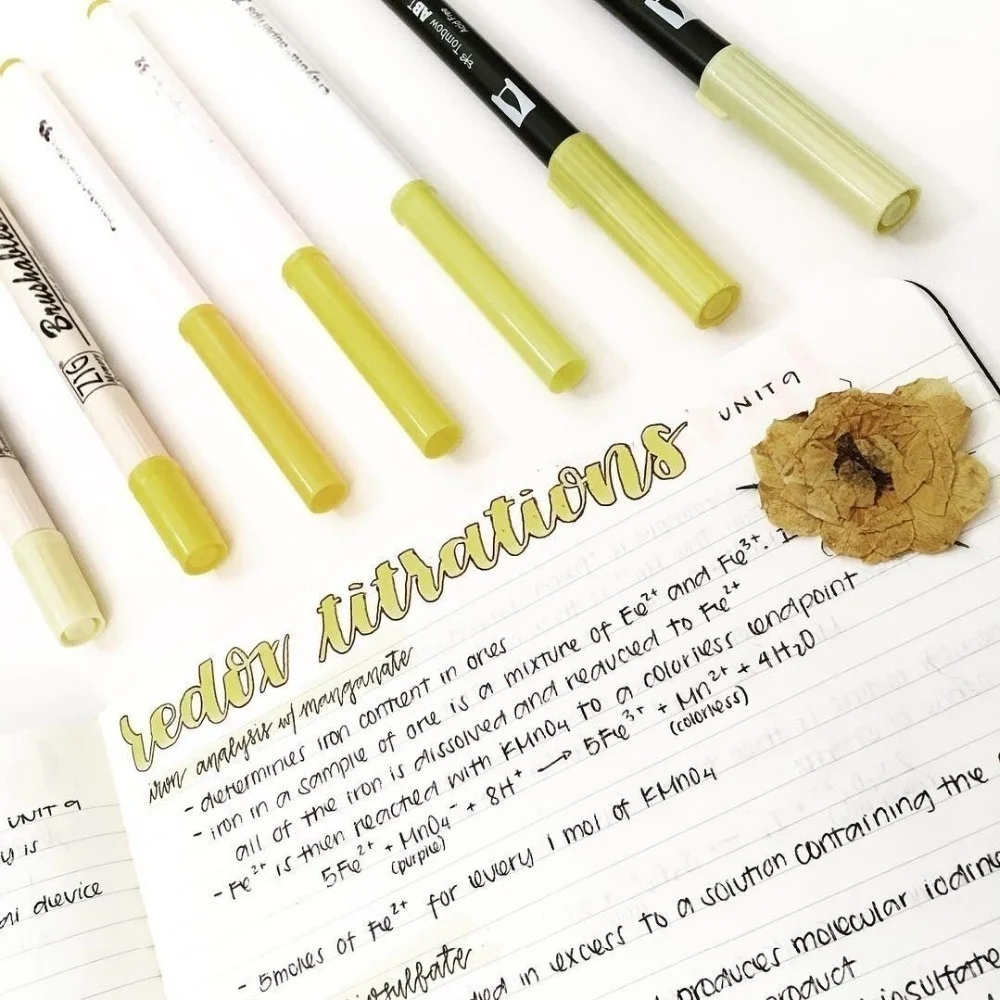 Tombow ABT
Acid Free
ZIG Brushables
UNIT 9
redox titrations
iron analysis w/ manganate
- determines iron content in ores
- iron in a sample of ore is a mixture of Fe²⁺ and Fe³⁺.
all of the iron is dissolved and reduced to Fe²⁺
- Fe²⁺ is then reacted with KMnO4 to a colorless endpoint
5Fe²⁺ + MnO₄⁻ + 8H⁺ → 5Fe³⁺ + Mn²⁺ + 4H₂O
(purple) (colorless)
- 5 moles of Fe²⁺ for every 1 mol of KMnO4
in excess to a solution containing the
produces molecular iodine
product
UNIT 9
y is
device